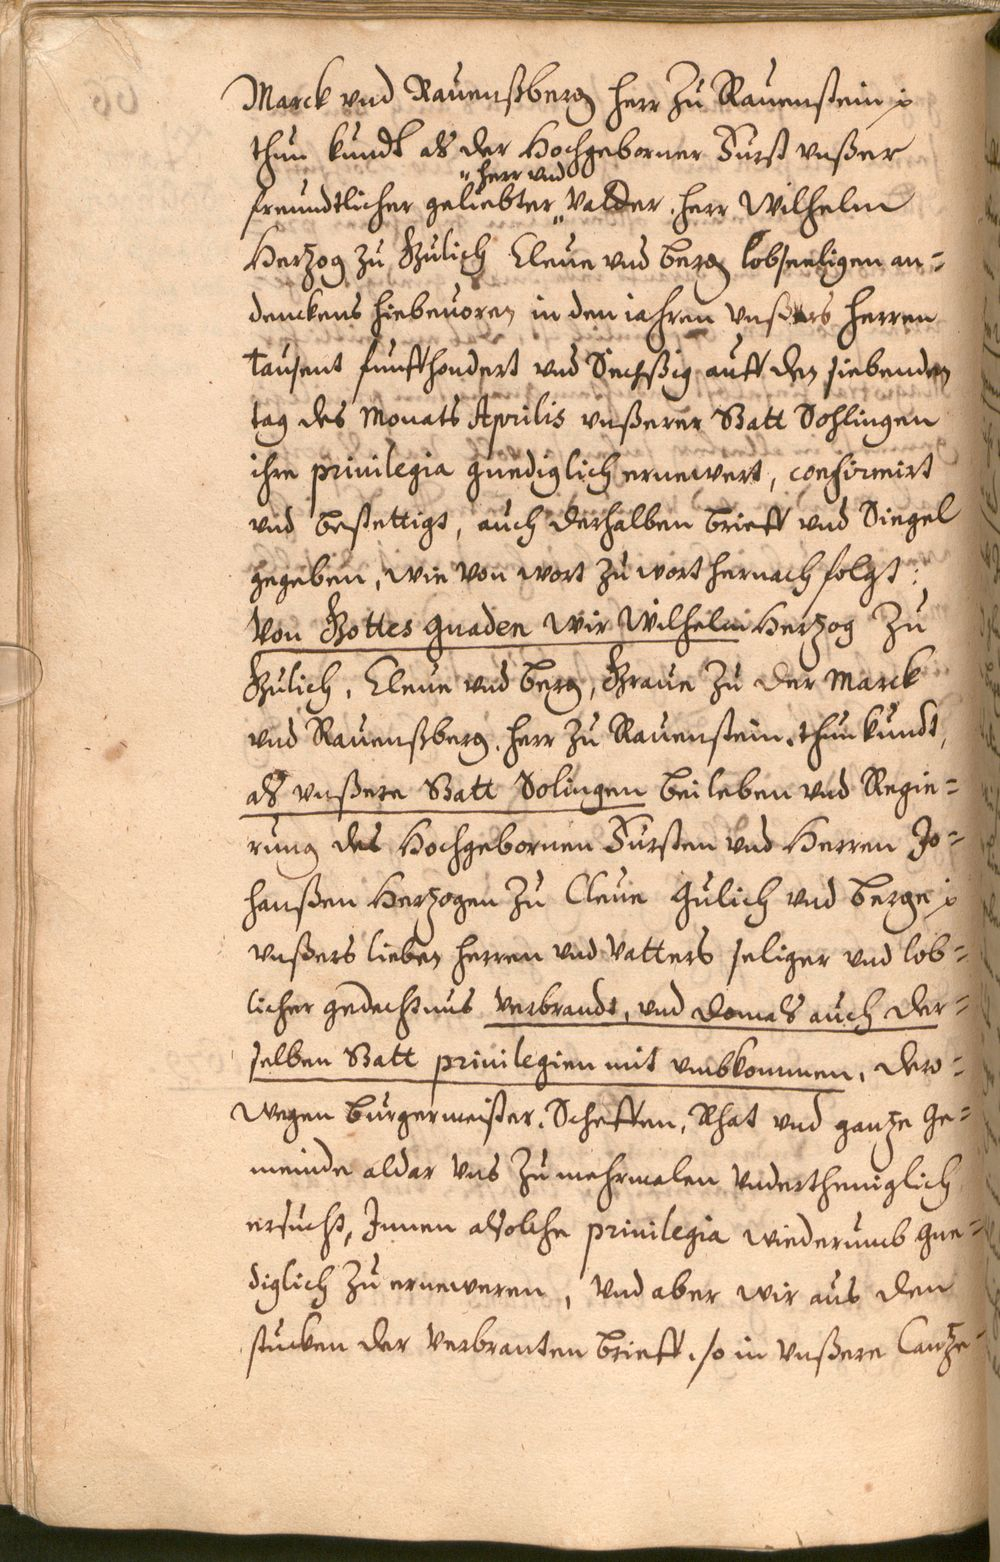 Marck vnd Rauenßberg herr Zu Rauenstein p
thun kundt als der Hochgeborner Furst vnßer
" herr vnd
freundtlicher geliebter " Vatter herr Wilhelm
Hertzog zu Gulich Cleue vnd berg lobseeligen an=
denckens hiebeuoren in den iahren vnßers herren
tausent funffhondert vnd Sechßig auff den siebenden
tag des Monats Aprilis vnßerer Statt Sohlingen
ihre priuilegia gnediglich ernewert, confirmirt
vnd bestettigt, auch derhalben brieff vnd Siegel
gegeben, wie von wort zu wort hernach folgt:
Von Gottes gnaden wir Wilhelm Hertzog Zu
Gulich, Cleue vnd berg, Graue Zu der Marck
vnd Rauenßberg, herr Zu Rauenstein, thun kundt,
als vnßere Statt Solingen bei leben vnd Regie=
rung des Hochgebornen Fursten vnd Herren Jo=
hanßen Hertzogen Zu Cleue Gulich vnd berge p
vnßers lieben herren vnd Vatters seliger vnd lob=
licher gedechtnus verbrandt, vnd domals auch der=
selben Statt priuilegien mit vmbkommen, dero=
wegen burgermeister, Scheffen, Rhat vnd gantze Ge=
meinde aldar vns Zu mehrmalen vndertheniglich
ersucht, Innen alsolche priuilegia wiederumb gne=
diglich Zu erneweren, vnd aber wir aus den
stucken der verbranten brieff, so in vnßere Cantze=